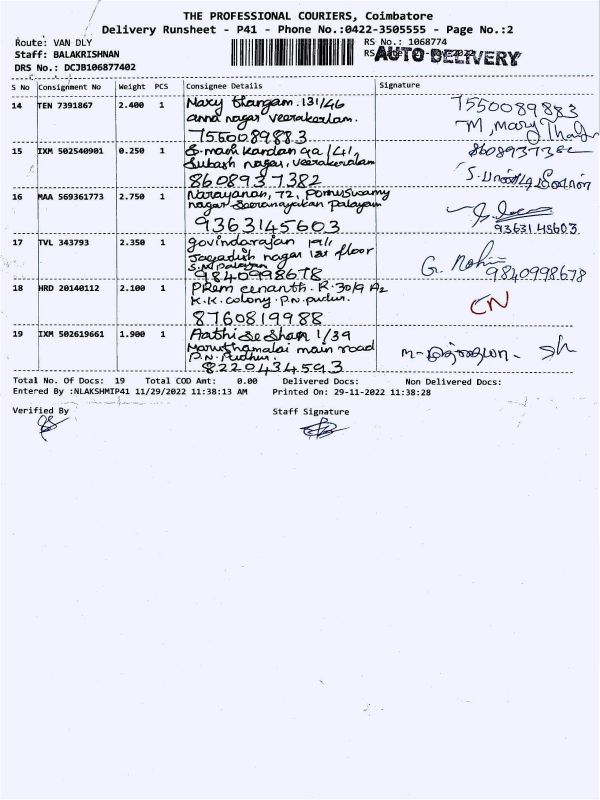 THE PROFESSIONAL COURIERS, Coimbatore
Delivery Runsheet - P41 - Phone No.:0422-3505555 - Page No.:2
Route: VAN DLY
RS No.: 1068774
Staff: BALAKRISHNAN
AUTO DELIVERY
DRS No.: DCJB106877402
S No Consignment No Weight PCS Consignee Details Signature
14 TEN 7391867 2.400 1 Mary thangam. 131/46
anna nagar veerakerlam.
7550089883
7550089883
M. Mary
15 IXM 502540901 0.250 1
Subash nagar, veerakeralam
8608937382
16 MAA 569361773 2.750 1 Narayanan, 72, Ponnuswamy
nagar Palayam
9363145603
9363145603
17 TVL 343793 2.350 1 govindarajan
Jagadish nagar 1st floor
9840998678
G.
9840998678
18 HRD 20140112 2.100 1 Prem R. 30/9 A2
K.K. colony. P.N. pudur.
8760819988
CN
19 IXM 502619661 1.900 1 1/39
Maruthamalai main road
P.N. Pudhur.
8220434593
Total No. Of Docs: 19 Total COD Amt: 0.00 Delivered Docs: Non Delivered Docs:
Entered By :NLAKSHMIP41 11/29/2022 11:38:13 AM Printed On: 29-11-2022 11:38:28
Verified By Staff Signature